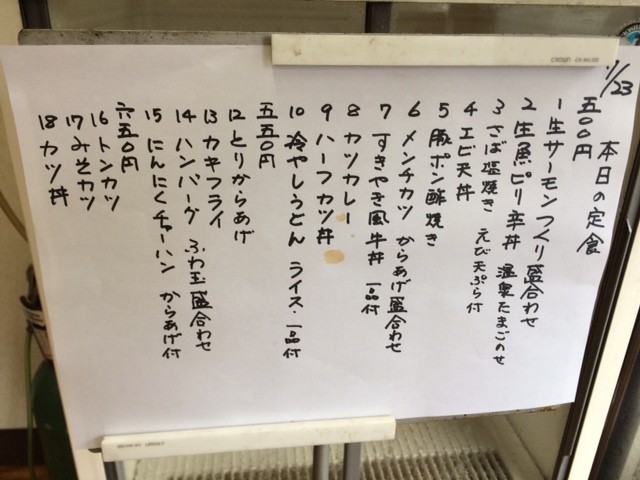 7/23
本日の定食
五〇〇円
1 生サーモンつくり盛合わせ
2 生魚ピリ辛丼 温泉たまごのせ
3 さば塩焼き えび天ぷら付
4 エビ天丼
5 豚ポン酢焼き
6 メンチカツ からあげ盛合わせ
7 すきやき風牛丼 一品付
8 カツカレー
9 ハーフカツ丼
10 冷やしうどん ライス・一品付
五五〇円
12 とりからあげ
13 カキフライ
14 ハンバーグ ふわ玉盛合わせ
15 にんにくチャーハン からあげ付
六五〇円
16 トンカツ
17 みそカツ
18 カツ丼